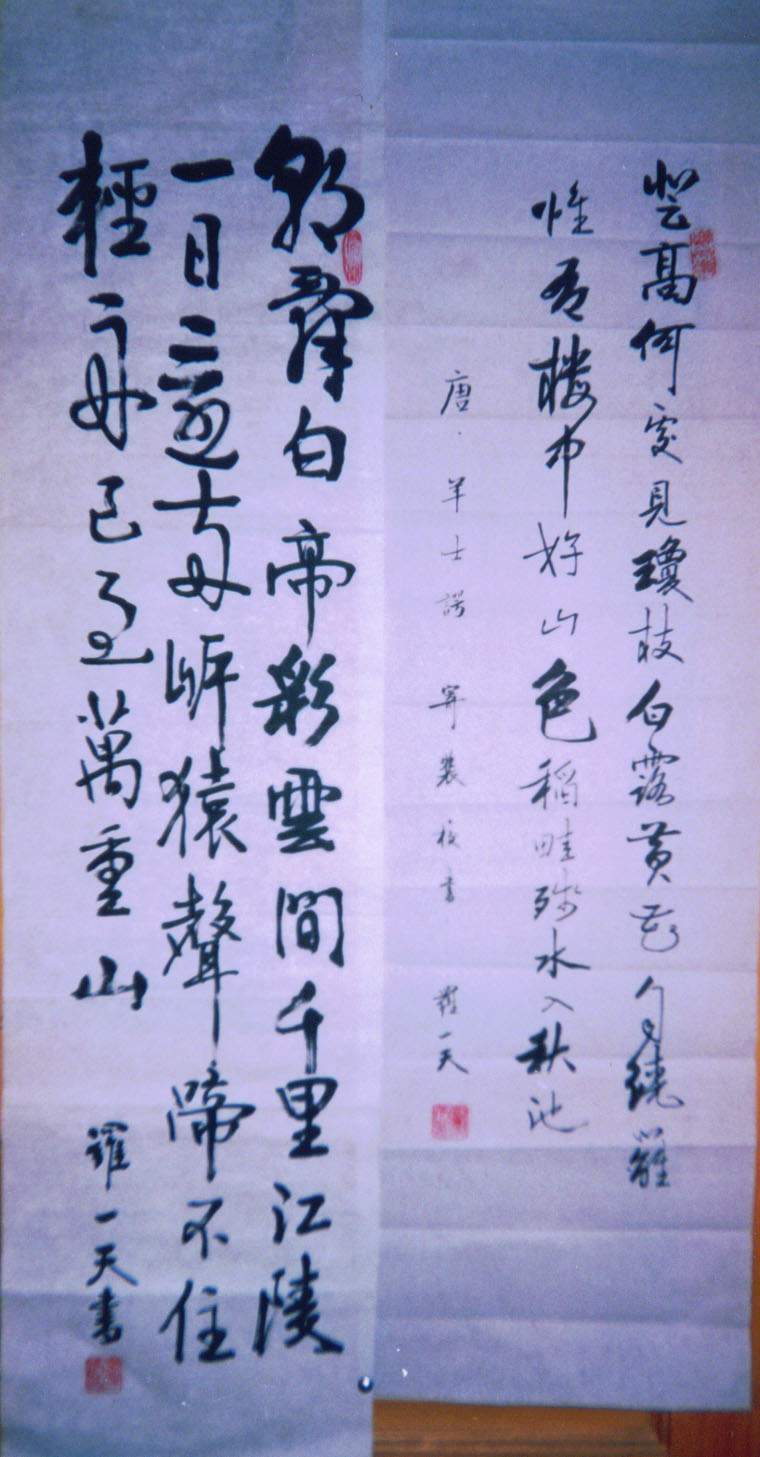 登高何處見瓊枝白露黃花自繞籬
惟有楼中好山色稻畦殘水入秋池
唐·羊士諤·寄裴校書 羅一天
朝辭白帝彩雲間千里江陵
一日還兩岸猿聲啼不住
輕舟已過萬重山 羅一天書